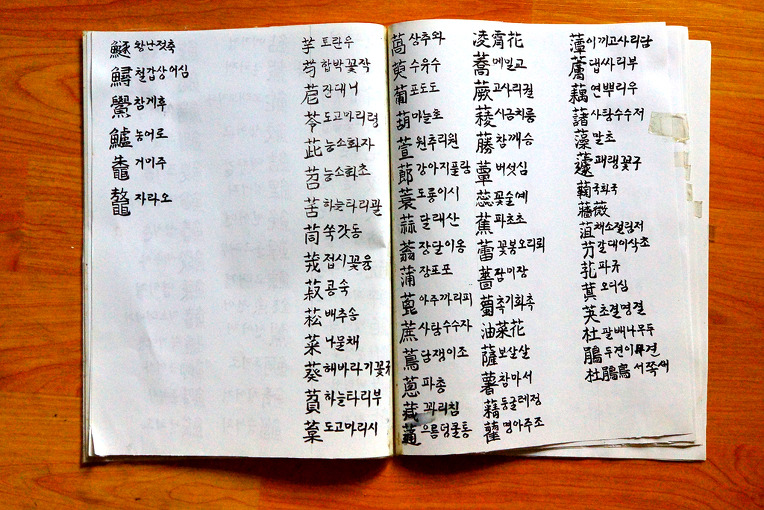 鱁 왕난젓축
鱘 철갑상어심
鱟 참게후
鱸 농어로
거미주
자라오
芋 토란우
芍 함박꽃작
잔대너
苓 도고마리령
茈 능소화자
苕 능소화초
苦 하늘타리괄
茼 쑥갓동
茙 접시꽃융
菽 콩숙
菘 배추숭
菜 나물채
葵 해바라기꽃
萯 하늘타리부
葈 도고마리시
萵 상추와
萸 수유수
葡 포도도
葫 마늘호
萱 원추리원
蓈 강아지풀랑
蓑 도롱이시
蒜 달래산
蓊 장다리옹
蒲 창포포
蓖 아주까리피
蔗 사탕수수자
蔦 담쟁이조
蔥 파총
蕆 꽈리침
으름덩굴통
凌霄花
蕎 메밀교
蕨 고사리궐
蔆 시금치릉
藤 참깨승
蕈 버섯심
蕊 꽃술예
蕉 파초초
蕾 꽃봉오리뢰
薔 장미장
蜀 촉기화촉
油菜花
薩 보살살
薯 참마서
藉 둥굴레정
藋 명아주조
藫 이끼고사리담
댑싸리부
藕 연뿌리우
藷 사탕수수저
藻 말초
蘧 패랭꽃구
국화국
薔薇
菹 채소절림저
艻 갈대이삭초
芤 파규
萁 오디심
英 초결명결
杜 팥배나무두
鵑 두견이견
杜鵑鳥 서쪽새